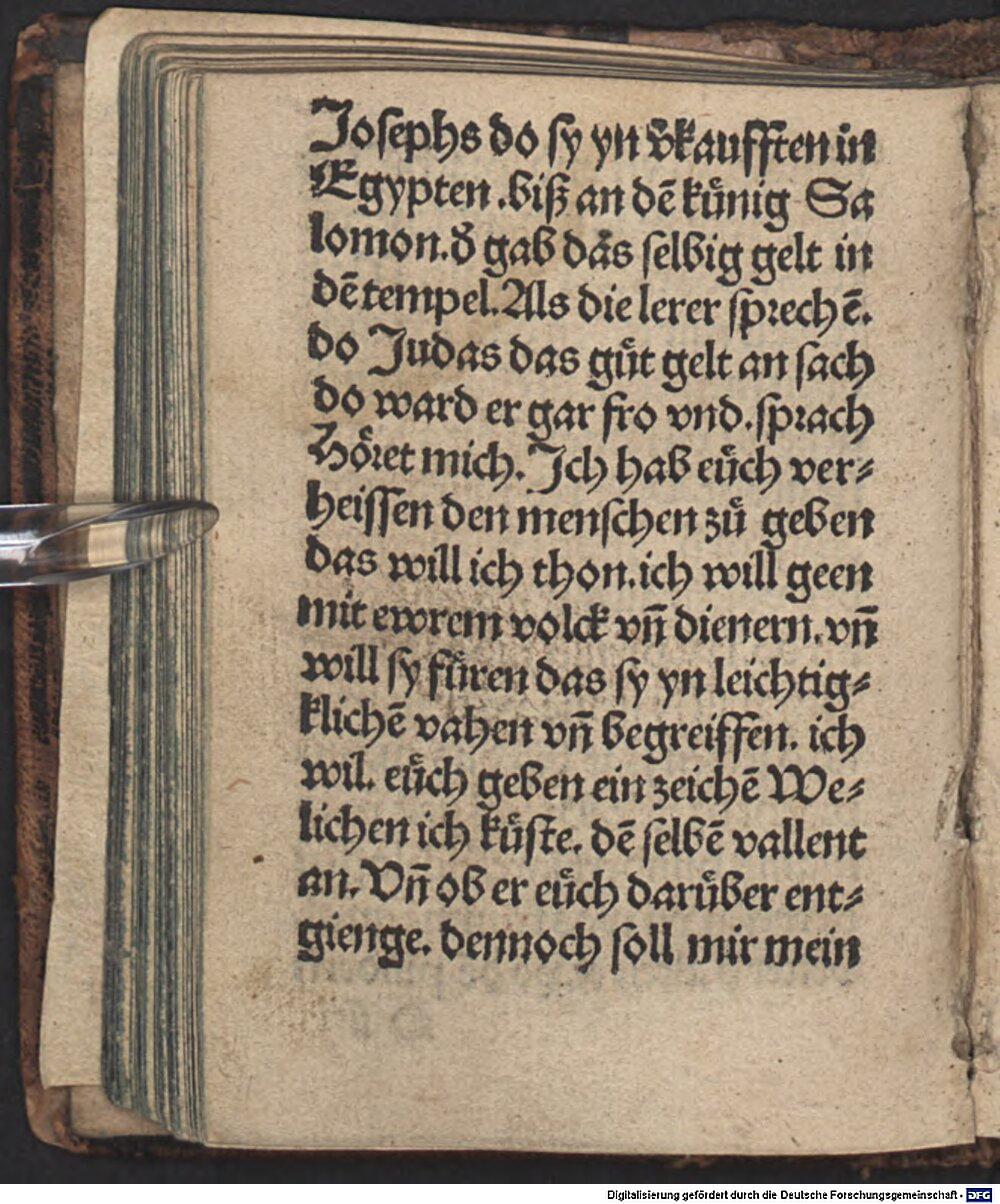 Josephs do sy yn v̄kaufften in
Egypten .biß an dē kuͤnig Sa
lomon. dͤ gab das selbig gelt in
dē tempel. Als die lerer sprechē.
do Judas das guͤt gelt an sach
do ward er gar fro vnd. sprach
Hoͤret mich. Jch hab euͤch ver⸗
heissen den menschen zuͤ geben
das will ich thon. ich will geen
mit ewrem volck vn̄ dienern. vn̄
will sy fuͤren das sy yn leichtig⸗
klichē vahen vn̄ begreiffen. ich
wil. euͤch geben ein zeichē We⸗
lichen ich kuͤste. dē selbē vallent
an. Vn̄ ob er euͤch daruͤber ent⸗
gienge. dennoch soll mir mein
Digitalisierung gefördert durch die Deutsche Forschungsgemeinschaft - DFG